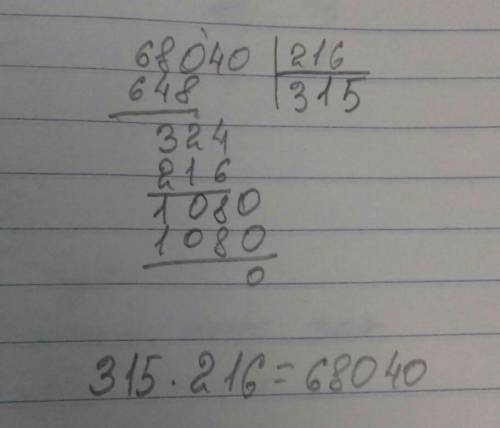 68040 216
648 315
324
216
1080
1080
0
315 · 216 = 68040